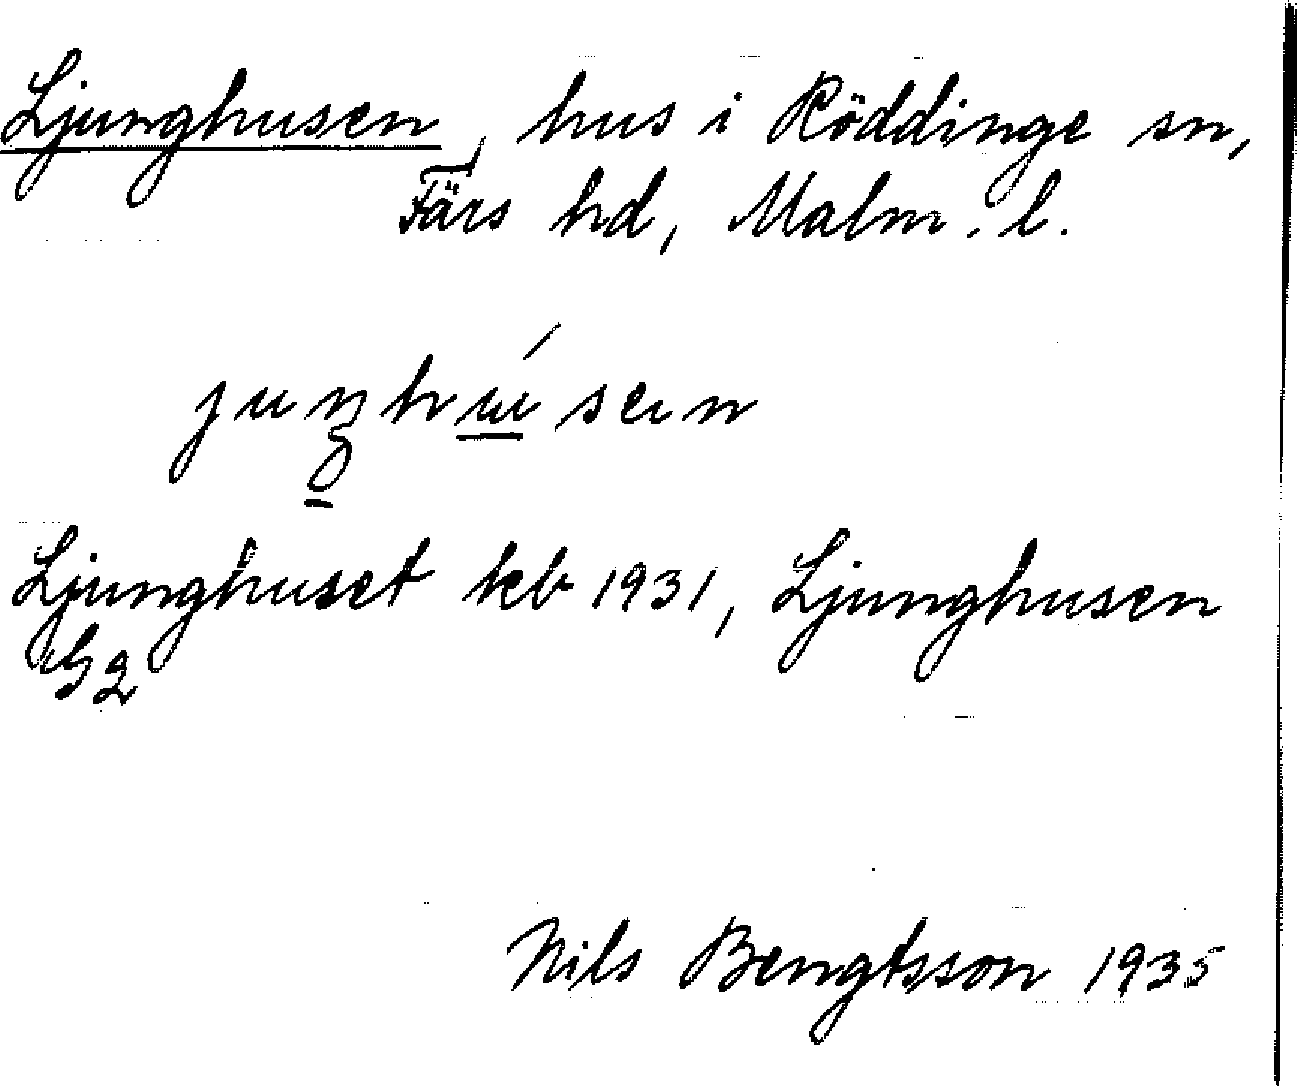 Ljunghusen, hus i Röddinge sn,
Färs hd, Malm. l.
Ljunghuset kb 1931, Ljunghusen
G2
Nils Bengtsson 1935